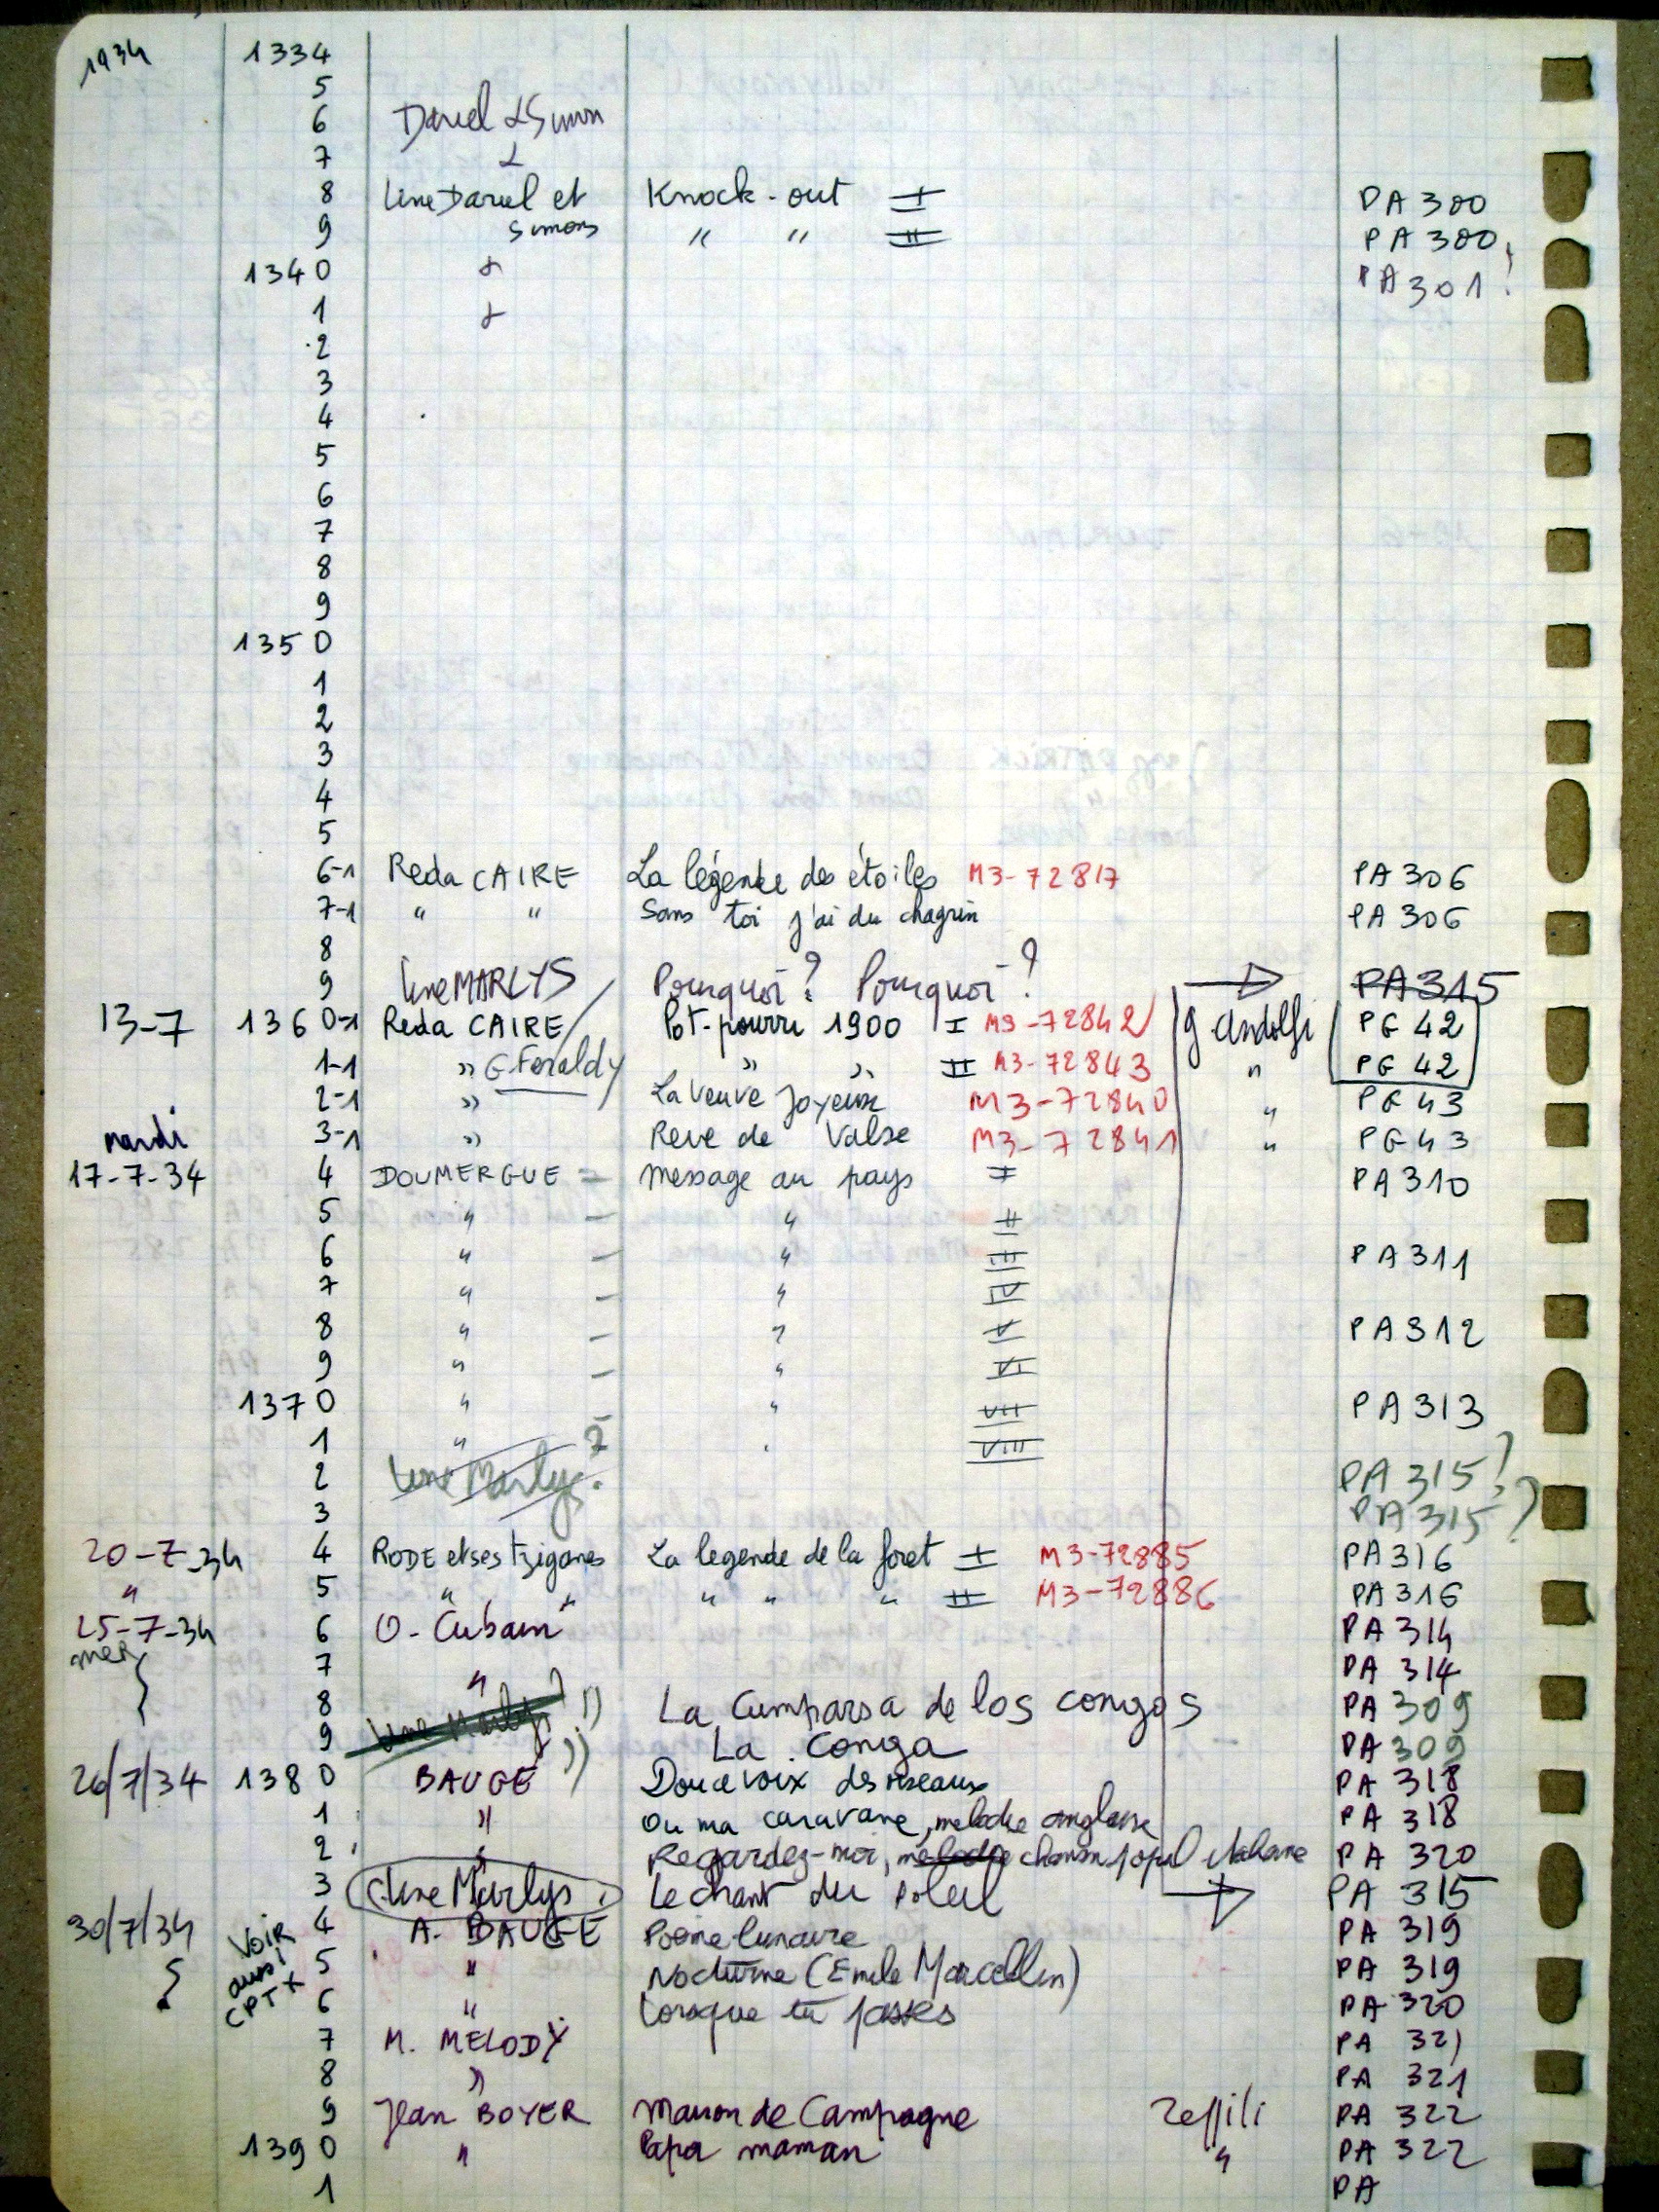 1934 1334
5
6 Darcel & Simon
7
8 Line Dariel et Knock-out I PA 300
9 Simons " " II PA 300
1340 PA 301 ?
1
2
3
4
5
6
7
8
9
1350
1
2
3
4
5
6-1 Reda CAIRE La légende des étoiles M3-72817 PA 306
7-1 " " Sans toi j'ai du chagrin PA 306
8
9 Line MARLYS Pourquoi ? Pourquoi ? → PA 315
13-7 1360-1 Reda CAIRE Pot-pourri 1900 I M3-72842 g Andolfi PG 42
1-1 " G Feraldy " " II M3-72843 " PG 42
2-1 " La veuve Joyeuse M3-72840 " PG 43
mardi 3-1 " Reve de Valse M3-72841 " PG 43
17-7-34 4 DOUMERGUE = Message au pays I PA 310
5 " - " II
6 " - " III PA 311
7 " - " IV
8 " - " V PA 312
9 " - " VI
1370 " " VII PA 313
1 " " VIII
2 Line Marlys ? PA 315 ?
3 PA 315 ?
20-7-34 4 RODE et ses tziganes La legende de la foret I M3-72885 PA 316
" 5 " " " " " II M3-72886 PA 316
25-7-34 6 O. Cubain PA 314
mer 7 " PA 314
8 Line Marlys ? " La Cumparsa de los congos PA 309
9 " La Conga PA 309
26/7/34 1380 BAUGE Douce voix des oiseaux PA 318
1 " Ou ma caravane, melodie anglaise PA 318
2 " Regardez-moi, mélodie chanson popul italiane PA 320
3 Line Marlys Le chant du soleil → PA 315
30/7/34 VOIR aussi CPTX 4 A. BAUGE Poeme lunaire PA 319
5 " Nocturne (Emile Marcellin) PA 319
6 " Lorsque tu passes PA 320
7 M. MELODY PA 321
8 " PA 321
9 Jean BOYER Maison de Campagne Zeffili PA 322
1390 " Papa maman " PA 322
1 PA